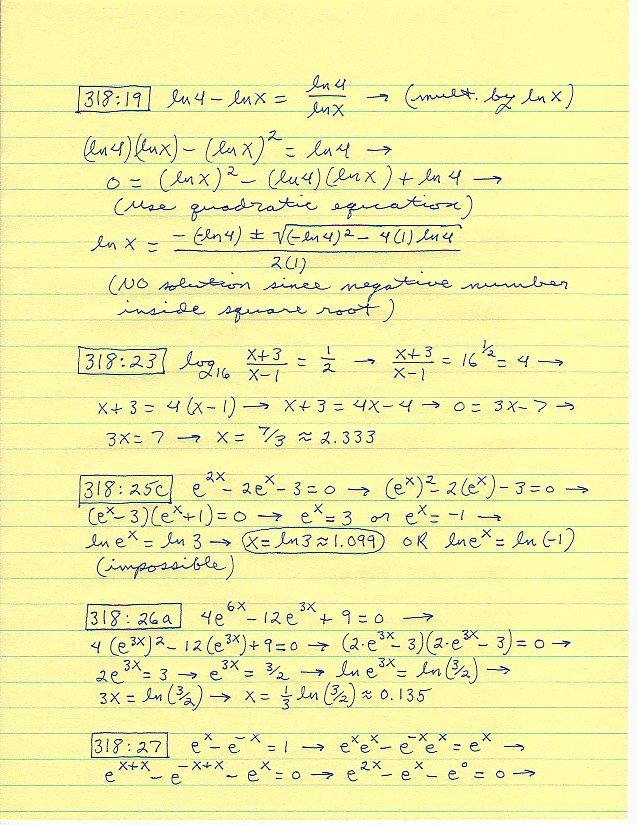 318:19 ln4 - lnx = ln4/lnx → (mult. by lnx)
(ln4)(lnx) - (lnx)² = ln4 →
0 = (lnx)² - (ln4)(lnx) + ln4 →
(Use quadratic equation)
lnx = (-(-ln4) ± √((-ln4)² - 4(1)ln4))/2(1)
(NO solution since negative number
inside square root)
318:23 log₁₆ (x+3)/(x-1) = 1/2 → (x+3)/(x-1) = 16^(1/2) = 4 →
x+3 = 4(x-1) → x+3 = 4x-4 → 0 = 3x-7 →
3x = 7 → x = 7/3 ≈ 2.333
318:25c e^(2x) - 2e^x - 3 = 0 → (e^x)² - 2(e^x) - 3 = 0 →
(e^x - 3)(e^x + 1) = 0 → e^x = 3 or e^x = -1 →
ln e^x = ln 3 → x = ln3 ≈ 1.099 OR ln e^x = ln(-1)
(impossible)
318:26a 4e^(6x) - 12e^(3x) + 9 = 0 →
4(e^(3x))² - 12(e^(3x)) + 9 = 0 → (2·e^(3x) - 3)(2·e^(3x) - 3) = 0 →
2e^(3x) = 3 → e^(3x) = 3/2 → ln e^(3x) = ln(3/2) →
3x = ln(3/2) → x = 1/3 ln(3/2) ≈ 0.135
318:27 e^x - e^(-x) = 1 → e^x e^x - e^(-x) e^x = e^x →
e^(x+x) - e^(-x+x) - e^x = 0 → e^(2x) - e^x - e^0 = 0 →